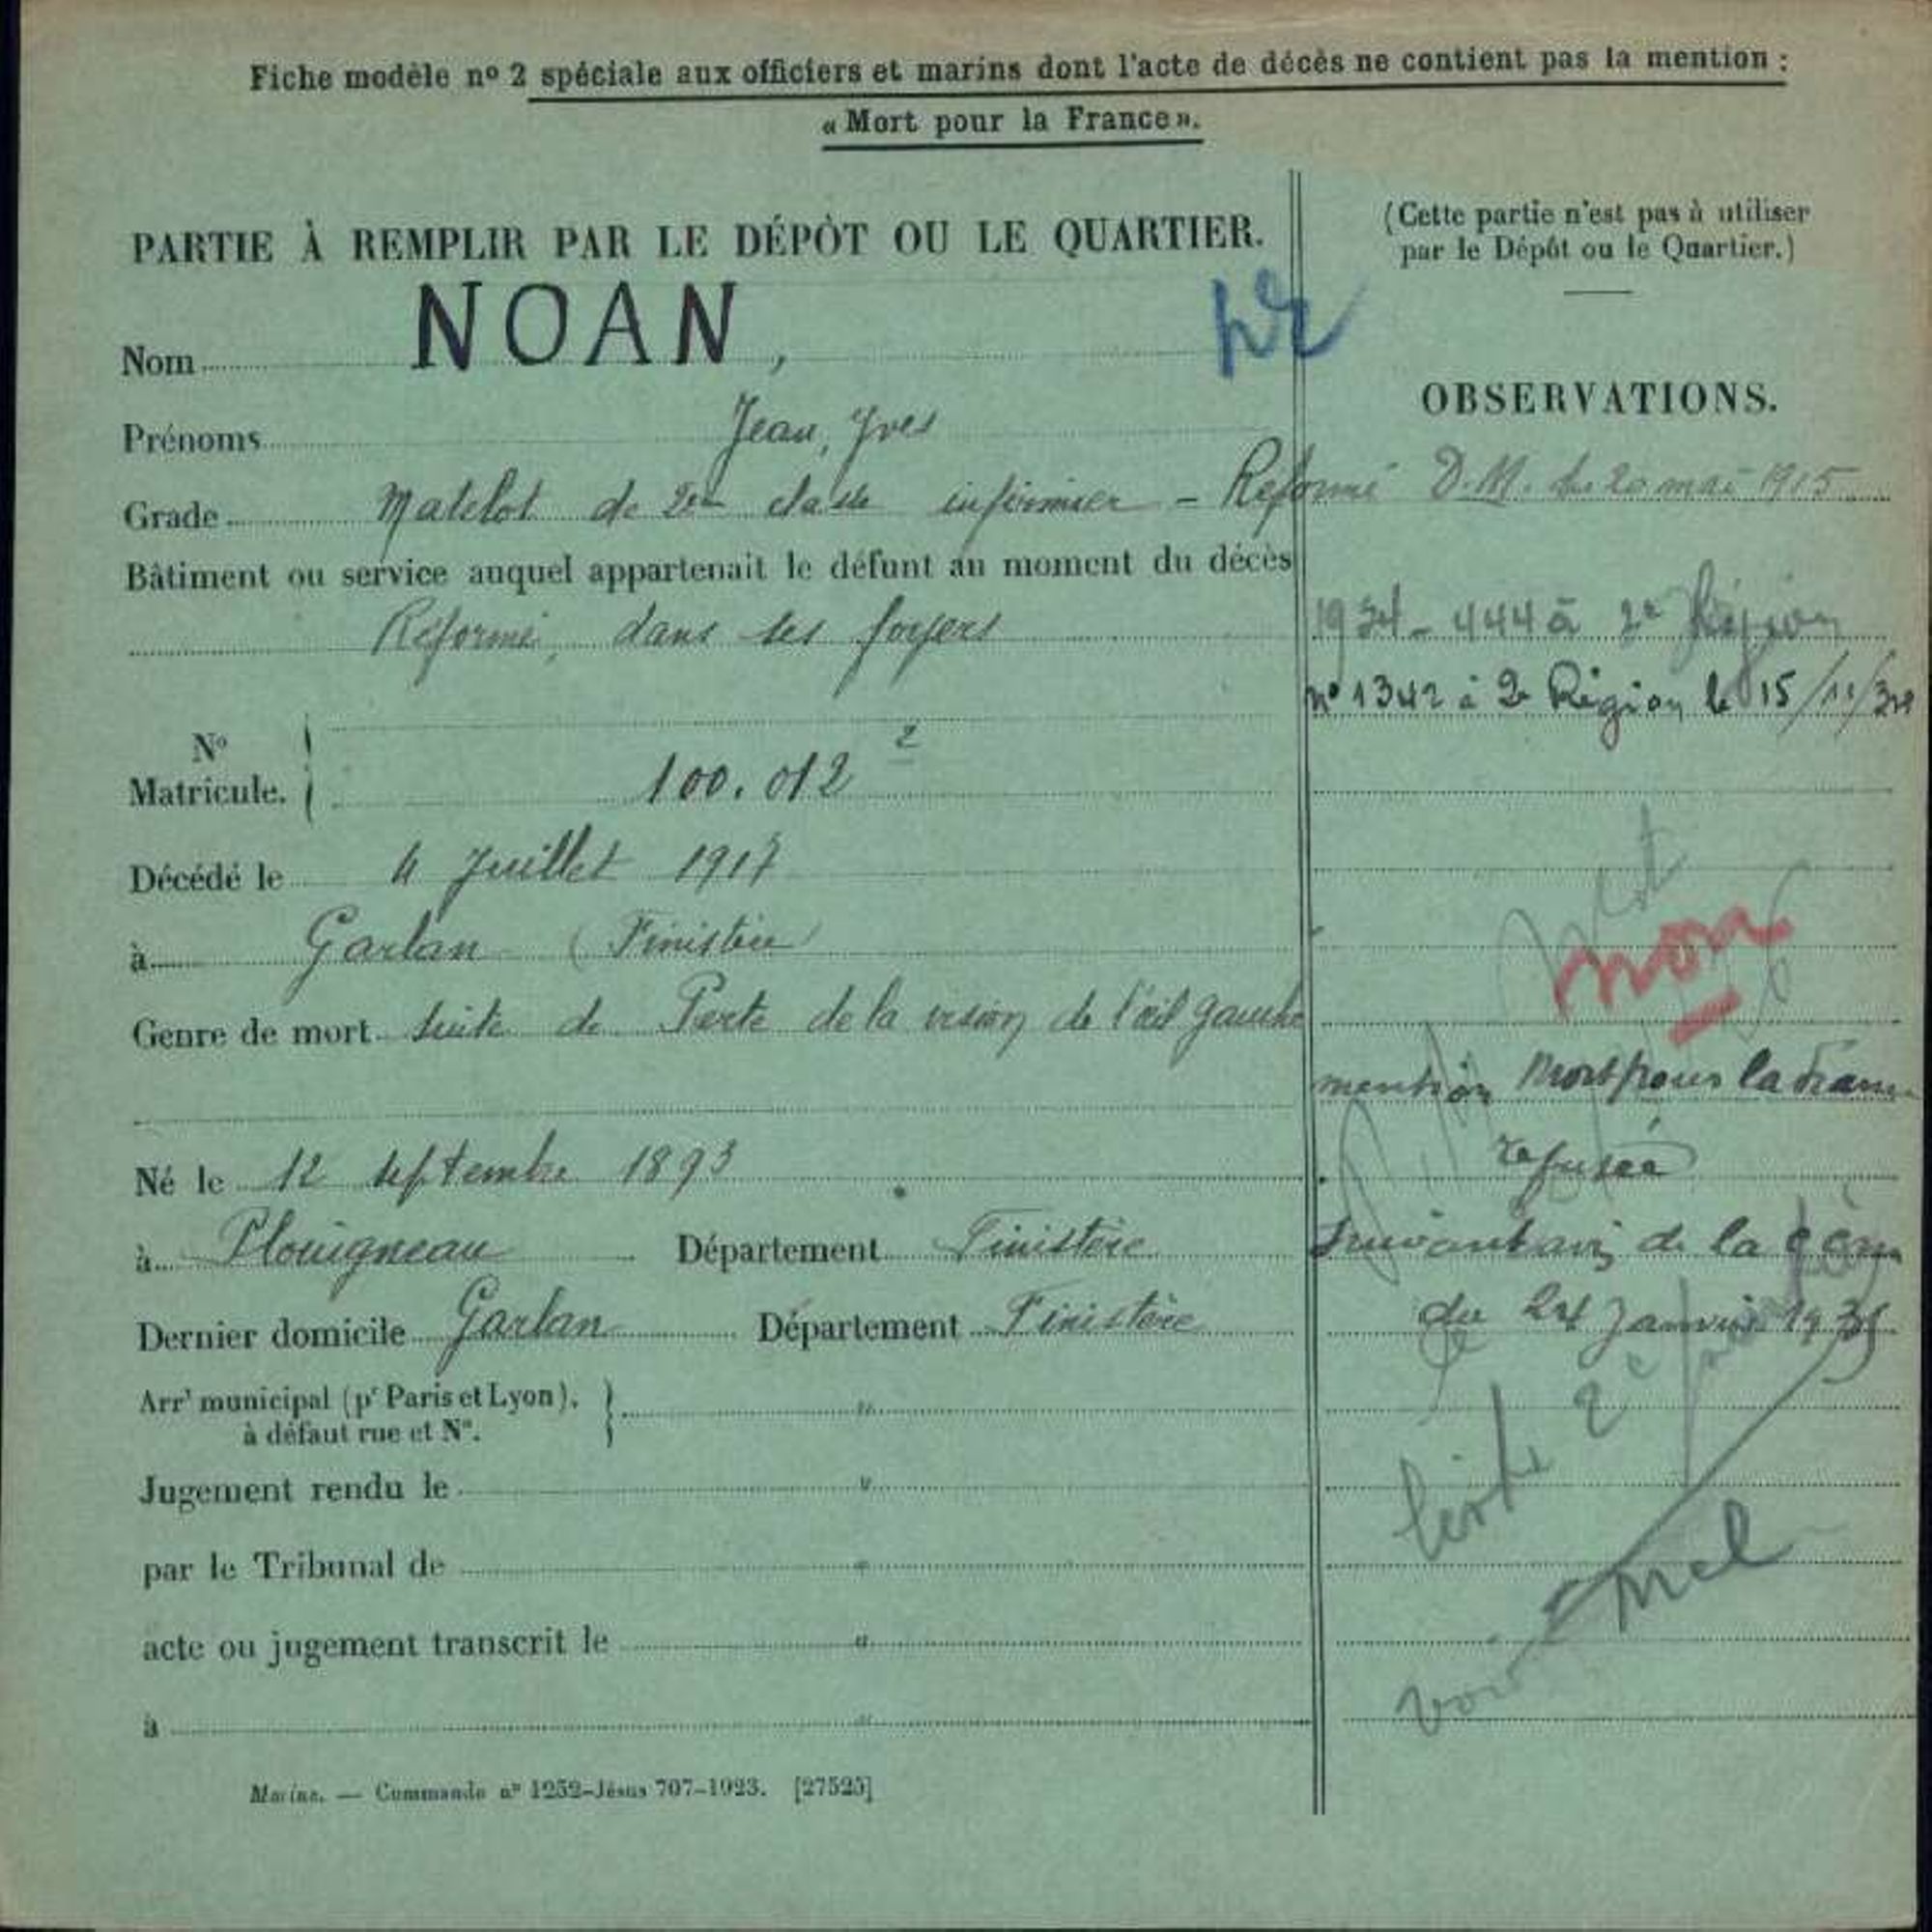 Fiche modèle nº 2 spéciale aux officiers et marins dont l'acte de décès ne contient pas la mention :
« Mort pour la France ».
PARTIE À REMPLIR PAR LE DÉPÔT OU LE QUARTIER.
Nom NOAN,
Prénoms Jean, Yves
Grade Matelot de 2e classe infirmier - Réformé D.M. du 20 mai 1915
Bâtiment ou service auquel appartenait le défunt au moment du décès
Réformé, dans ses foyers
Nº
Matricule. 100.012 2
Décédé le 4 Juillet 1917
à Garlan (Finistère)
Genre de mort suite de Perte de la vision de l'œil gauche
Né le 12 septembre 1893
à Plouigneau Département Finistère
Dernier domicile Garlan Département Finistère
Arrt municipal (pr Paris et Lyon),
à défaut rue et Nº. "
Jugement rendu le "
par le Tribunal de "
acte ou jugement transcrit le "
à "
Marine. — Commande nº 1252-Jésus 707-1923. [27525]
(Cette partie n'est pas à utiliser
par le Dépôt ou le Quartier.)
OBSERVATIONS.
1934 - 444 à 2e Région
nº 1342 à 2e Région le 15/11/34
non
mention Mort pour la France
refusée
suivant avis de la
du 24 Janvier 1935
liste 2e
voir